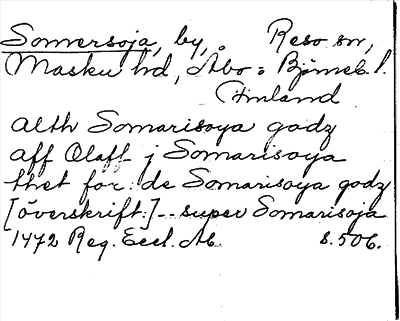 Somersoja, by, Reso sn,
Masku hd, Åbo = Björneb. l.
Finland
alth Somarisoya godz
aff Olaff j Somarisoya
thet for: de Somarisoya godz
[överskrift:] -- super Somarisoja
1472 Reg. Eccl. Ab. s. 506.